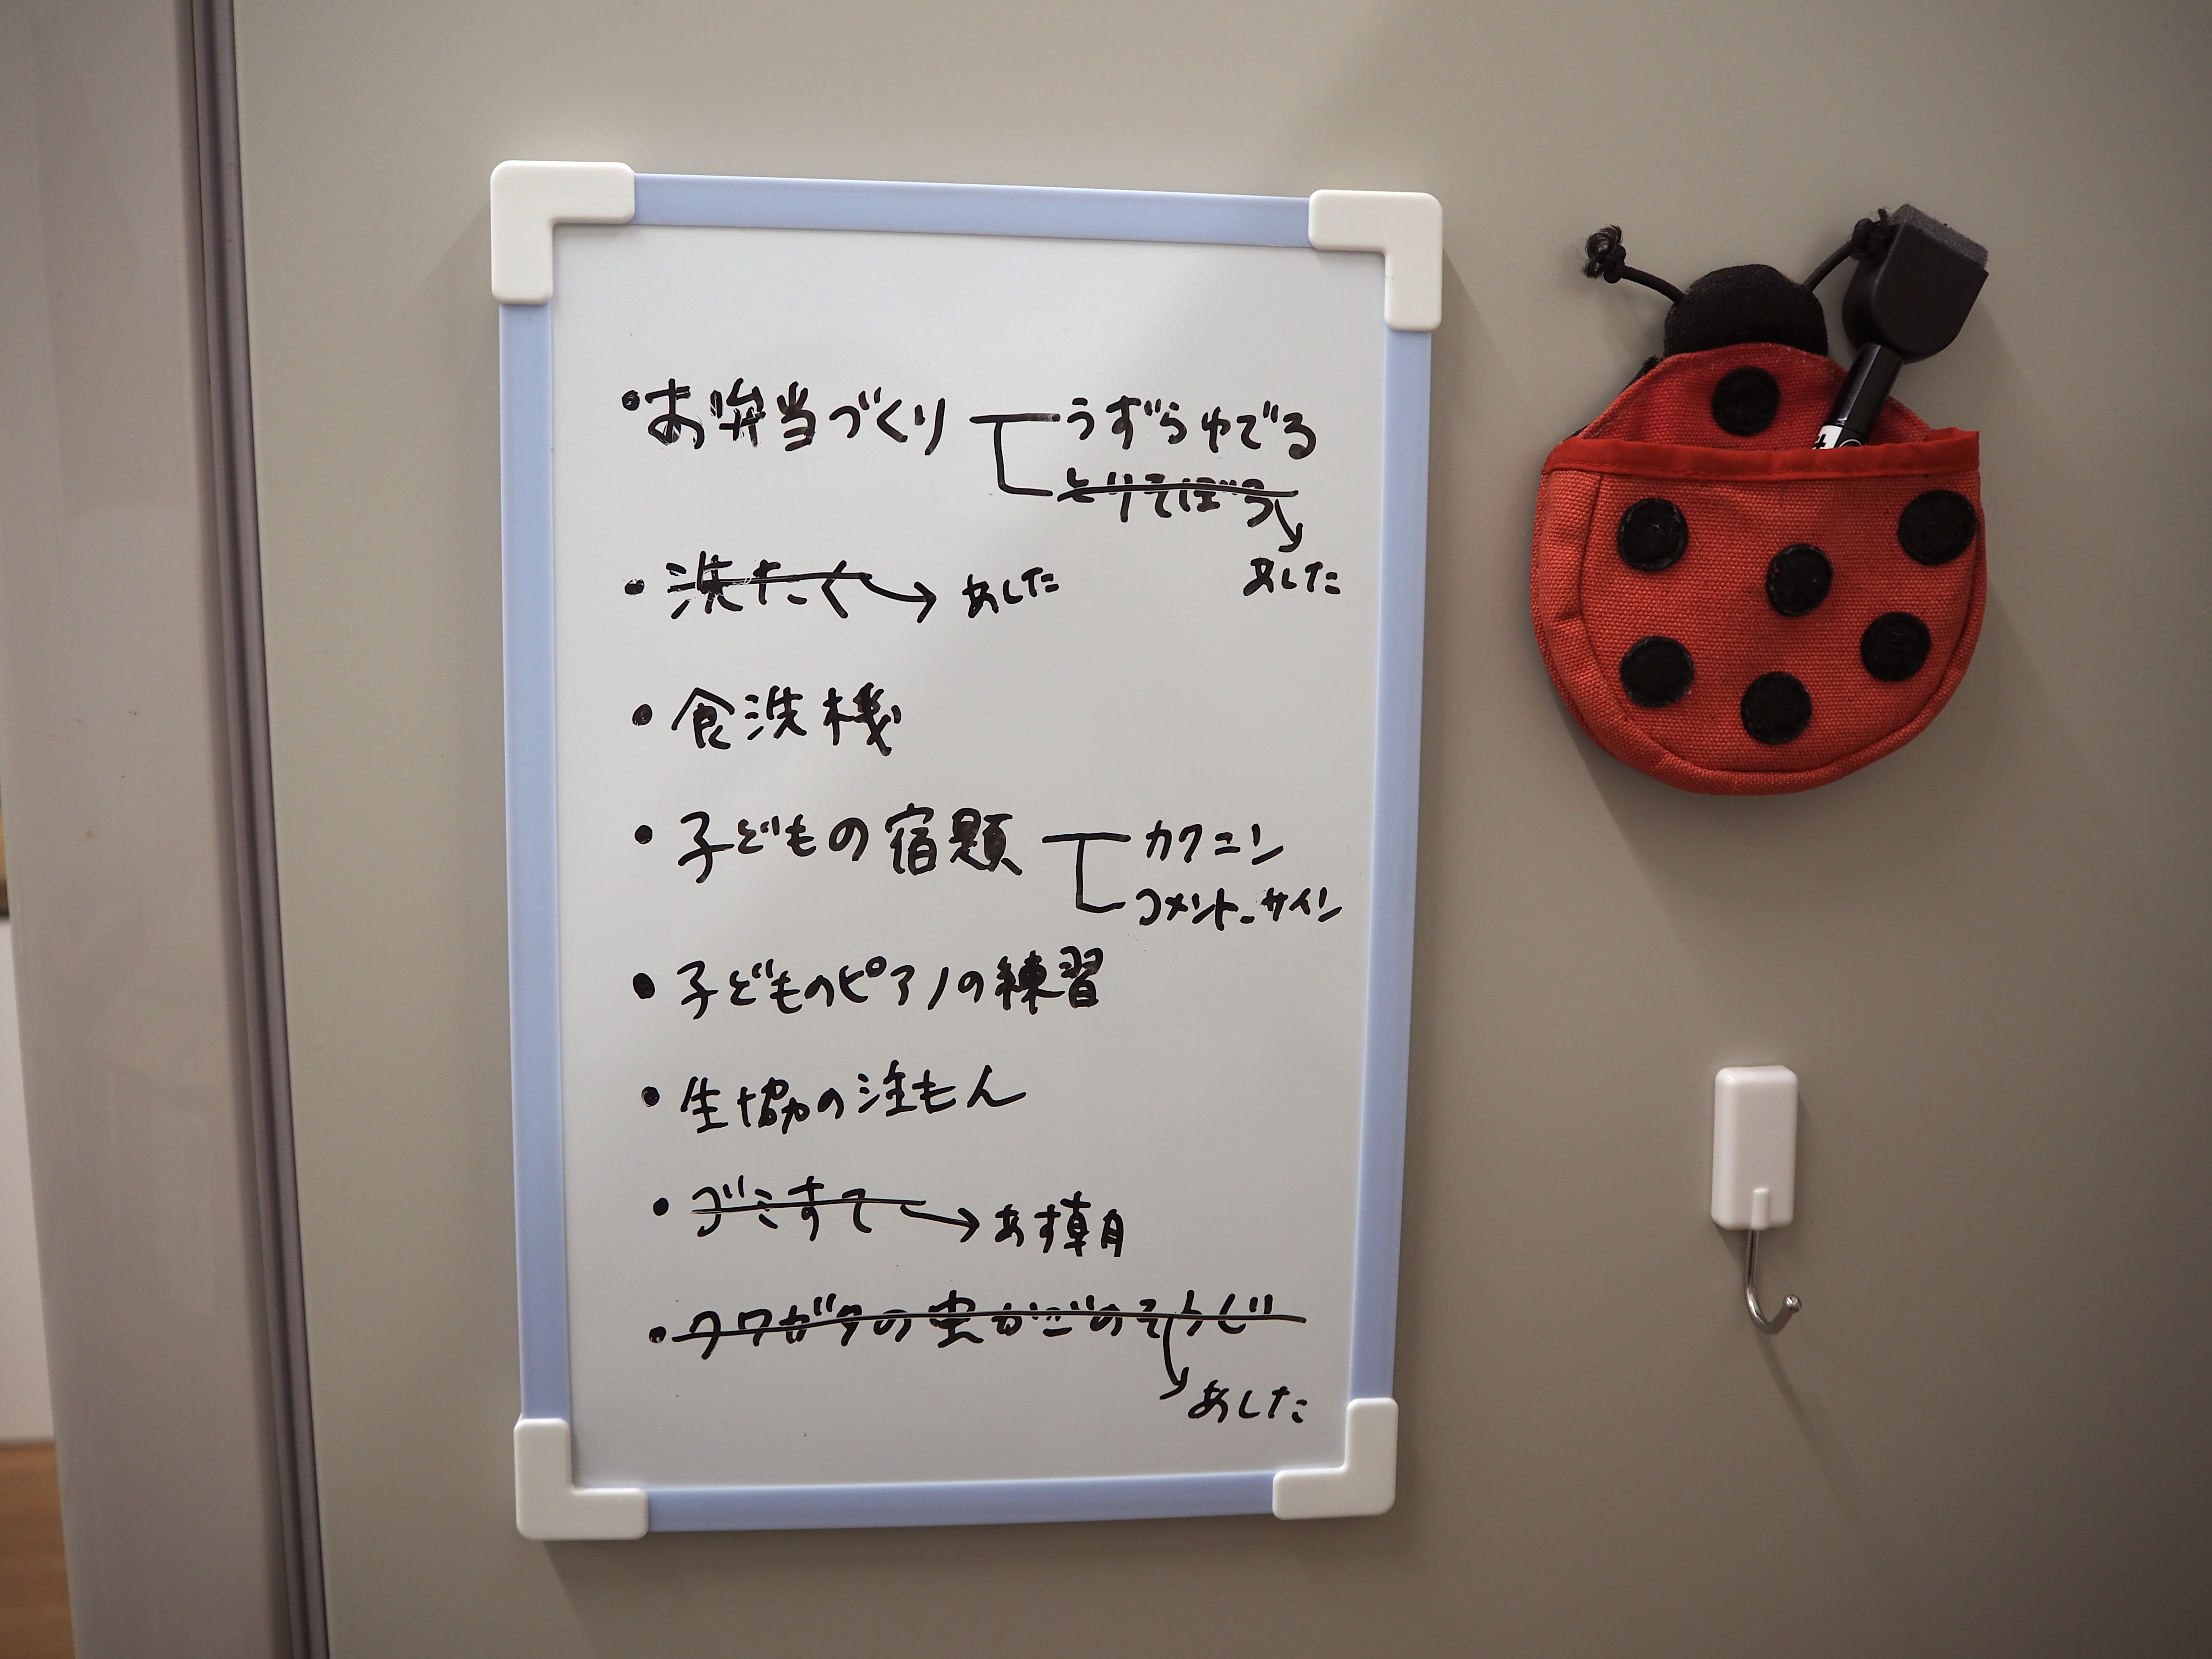 ・お弁当づくり
うずらゆでる
とりそぼろ
あした
・洗たく → あした
・食洗機
・子どもの宿題
カクニン
コメント、サイン
・子どものピアノの練習
・生協の注もん
・ゴミすて → あす朝
・クワガタの虫かごのそうじ
あした